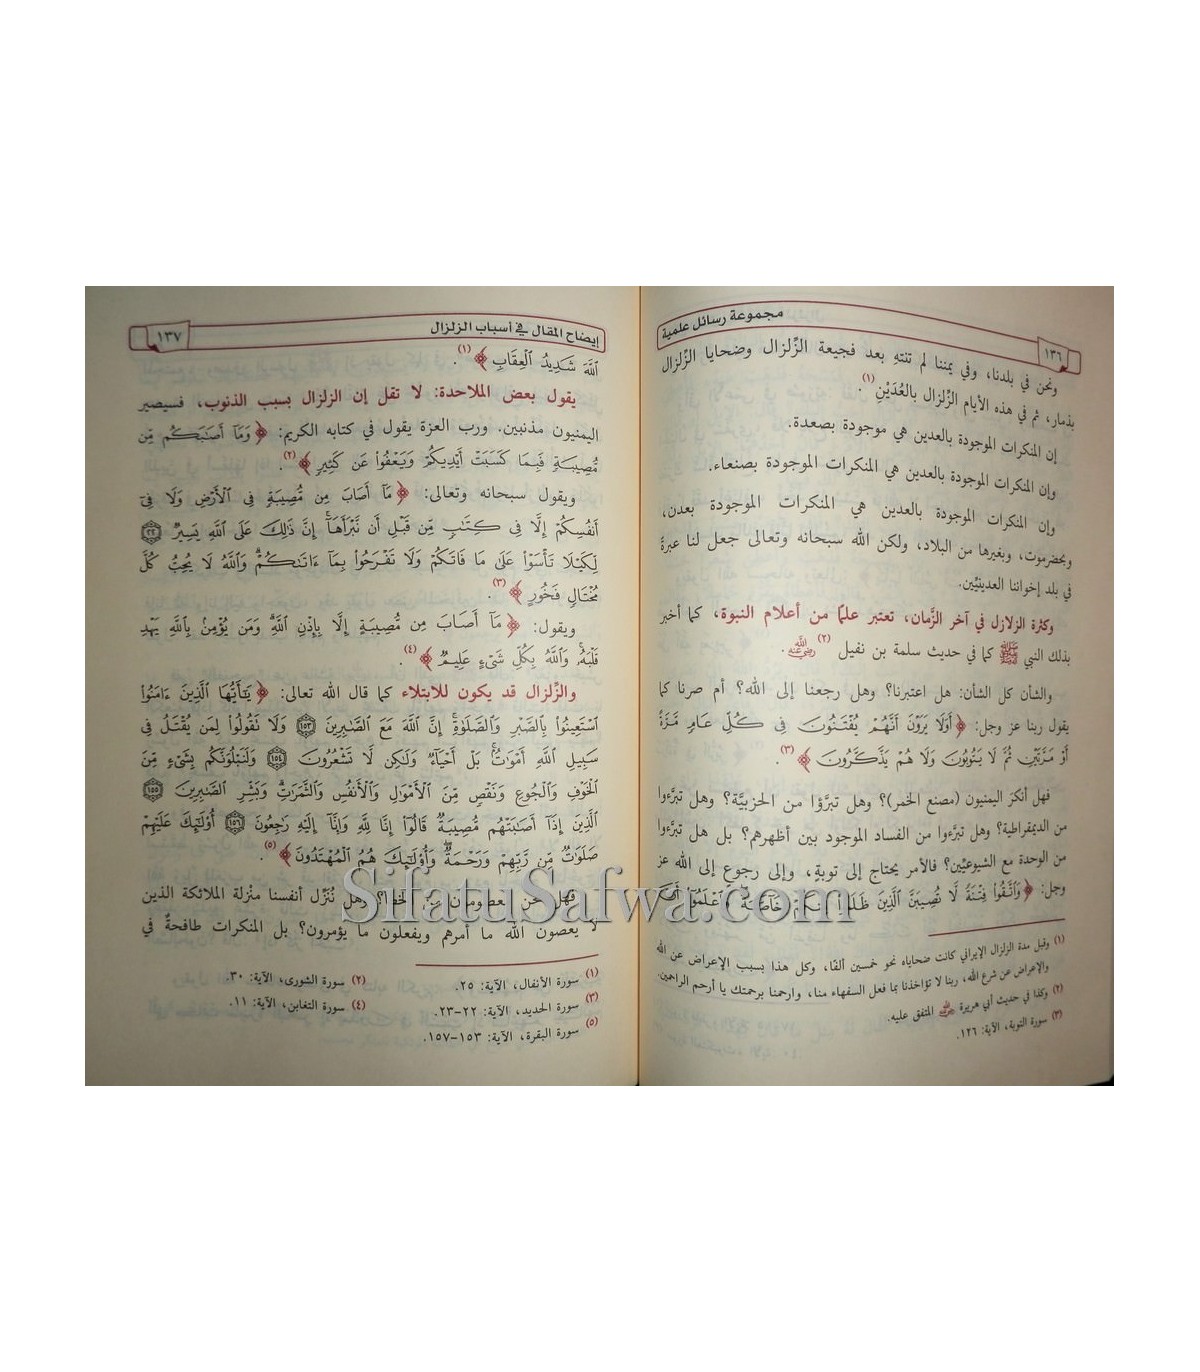 مجموعة رسائل علمية
١٣٦
ونحن في بلدنا، وفي يمننا لم تنتهِ بعد فجيعة الزِّلزال وضحايا الزِّلزال
بذمار، ثم في هذه الأيام الزِّلزال بالعُدَيْنِ (١).
إن المنكرات الموجودة بالعدين هي موجودة بصعدة.
وإن المنكرات الموجودة بالعدين هي المنكرات الموجودة بصنعاء.
وإن المنكرات الموجودة بالعدين هي المنكرات الموجودة بعدن،
وبحضرموت، وبغيرها من البلاد، ولكن الله سبحانه وتعالى جعل لنا عبرةً
في بلد إخواننا العدينيِّين.
وكثرة الزلازل في آخر الزَّمان، تعتبر علمًا من أعلام النبوة، كما أخبر
بذلك النبي ﷺ كما في حديث سلمة بن نفيل (٢) رضي الله عنه.
والشأن كل الشأن: هل اعتبرنا؟ وهل رجعنا إلى الله؟ أم صرنا كما
يقول ربنا عز وجل: ﴿أَوَلَا يَرَوْنَ أَنَّهُمْ يُفْتَنُونَ فِي كُلِّ عَامٍ مَّرَّةً
أَوْ مَرَّتَيْنِ ثُمَّ لَا يَتُوبُونَ وَلَا هُمْ يَذَّكَّرُونَ﴾ (٣).
فهل أنكرَ اليمنيون (مصنع الخمر)؟ وهل تبرَّؤوا من الحزبيَّة؟ وهل تبرَّءوا
من الديمقراطية؟ وهل تبرَّءوا من الفساد الموجود بين أظهرهم؟ بل هل تبرَّءوا
من الوحدة مع الشيوعيِّين؟ فالأمر يحتاج إلى توبةٍ، وإلى رجوع إلى الله عز
وجل: ﴿وَاتَّقُوا فِتْنَةً لَّا تُصِيبَنَّ الَّذِينَ ظَلَمُوا مِنكُمْ خَاصَّةً وَاعْلَمُوا أَنَّ
(١) وقيل مدة الزلزال الإيراني كانت ضحاياه نحو خمسين ألفا، وكل هذا بسبب الإعراض عن الله
والإعراض عن شرع الله، ربنا لا تؤاخذنا بما فعل السفهاء منا، وارحمنا برحمتك يا أرحم الراحمين.
(٢) وكذا في حديث أبي هريرة رضي الله عنه المتفق عليه.
(٣) سورة التوبة، الآية: ١٢٦.
إيضاح المقال في أسباب الزلزال
١٣٧
اللَّهَ شَدِيدُ الْعِقَابِ﴾ (١).
يقول بعض الملاحدة: لا تقل إن الزلزال بسبب الذنوب، فسيصير
اليمنيون مذنبين. ورب العزة يقول في كتابه الكريم: ﴿وَمَا أَصَابَكُم مِّن
مُّصِيبَةٍ فَبِمَا كَسَبَتْ أَيْدِيكُمْ وَيَعْفُوا عَن كَثِيرٍ﴾ (٢).
ويقول سبحانه وتعالى: ﴿مَا أَصَابَ مِن مُّصِيبَةٍ فِي الْأَرْضِ وَلَا فِي
أَنفُسِكُمْ إِلَّا فِي كِتَابٍ مِّن قَبْلِ أَن نَّبْرَأَهَا إِنَّ ذَلِكَ عَلَى اللَّهِ يَسِيرٌ ٢٢
لِكَيْلَا تَأْسَوْا عَلَى مَا فَاتَكُمْ وَلَا تَفْرَحُوا بِمَا ءَاتَاكُمْ وَاللَّهُ لَا يُحِبُّ كُلَّ
مُخْتَالٍ فَخُورٍ﴾ (٣).
ويقول: ﴿مَا أَصَابَ مِن مُّصِيبَةٍ إِلَّا بِإِذْنِ اللَّهِ وَمَن يُؤْمِن بِاللَّهِ يَهْدِ
قَلْبَهُ وَاللَّهُ بِكُلِّ شَيْءٍ عَلِيمٌ﴾ (٤).
والزِّلزال قد يكون للابتلاء كما قال الله تعالى: ﴿يَا أَيُّهَا الَّذِينَ ءَامَنُوا
اسْتَعِينُوا بِالصَّبْرِ وَالصَّلَوٰةِ إِنَّ اللَّهَ مَعَ الصَّابِرِينَ ١٥٣ وَلَا تَقُولُوا لِمَن يُقْتَلُ فِي
سَبِيلِ اللَّهِ أَمْوَاتٌ بَلْ أَحْيَاءٌ وَلَكِن لَّا تَشْعُرُونَ ١٥٤ وَلَنَبْلُوَنَّكُم بِشَيْءٍ مِّنَ
الْخَوْفِ وَالْجُوعِ وَنَقْصٍ مِّنَ الْأَمْوَالِ وَالْأَنفُسِ وَالثَّمَرَاتِ وَبَشِّرِ الصَّابِرِينَ ١٥٥
الَّذِينَ إِذَا أَصَابَتْهُم مُّصِيبَةٌ قَالُوا إِنَّا لِلَّهِ وَإِنَّا إِلَيْهِ رَاجِعُونَ ١٥٦ أُولَئِكَ عَلَيْهِمْ
صَلَوَاتٌ مِّن رَّبِّهِمْ وَرَحْمَةٌ وَأُولَئِكَ هُمُ الْمُهْتَدُونَ﴾ (٥).
فهل نحن معصومون من الخطأ؟ وهل نُنَزِّل أنفسنا منْزلة الملائكة الذين
لا يعصون الله ما أمرهم ويفعلون ما يؤمرون؟ بل المنكرات طافحةٌ في
(١) سورة الأنفال، الآية: ٢٥.
(٢) سورة الشورى، الآية: ٣٠.
(٣) سورة الحديد، الآية: ٢٢-٢٣.
(٤) سورة التغابن، الآية: ١١.
(٥) سورة البقرة، الآية: ١٥٣-١٥٧.
SifatuSafwa.com